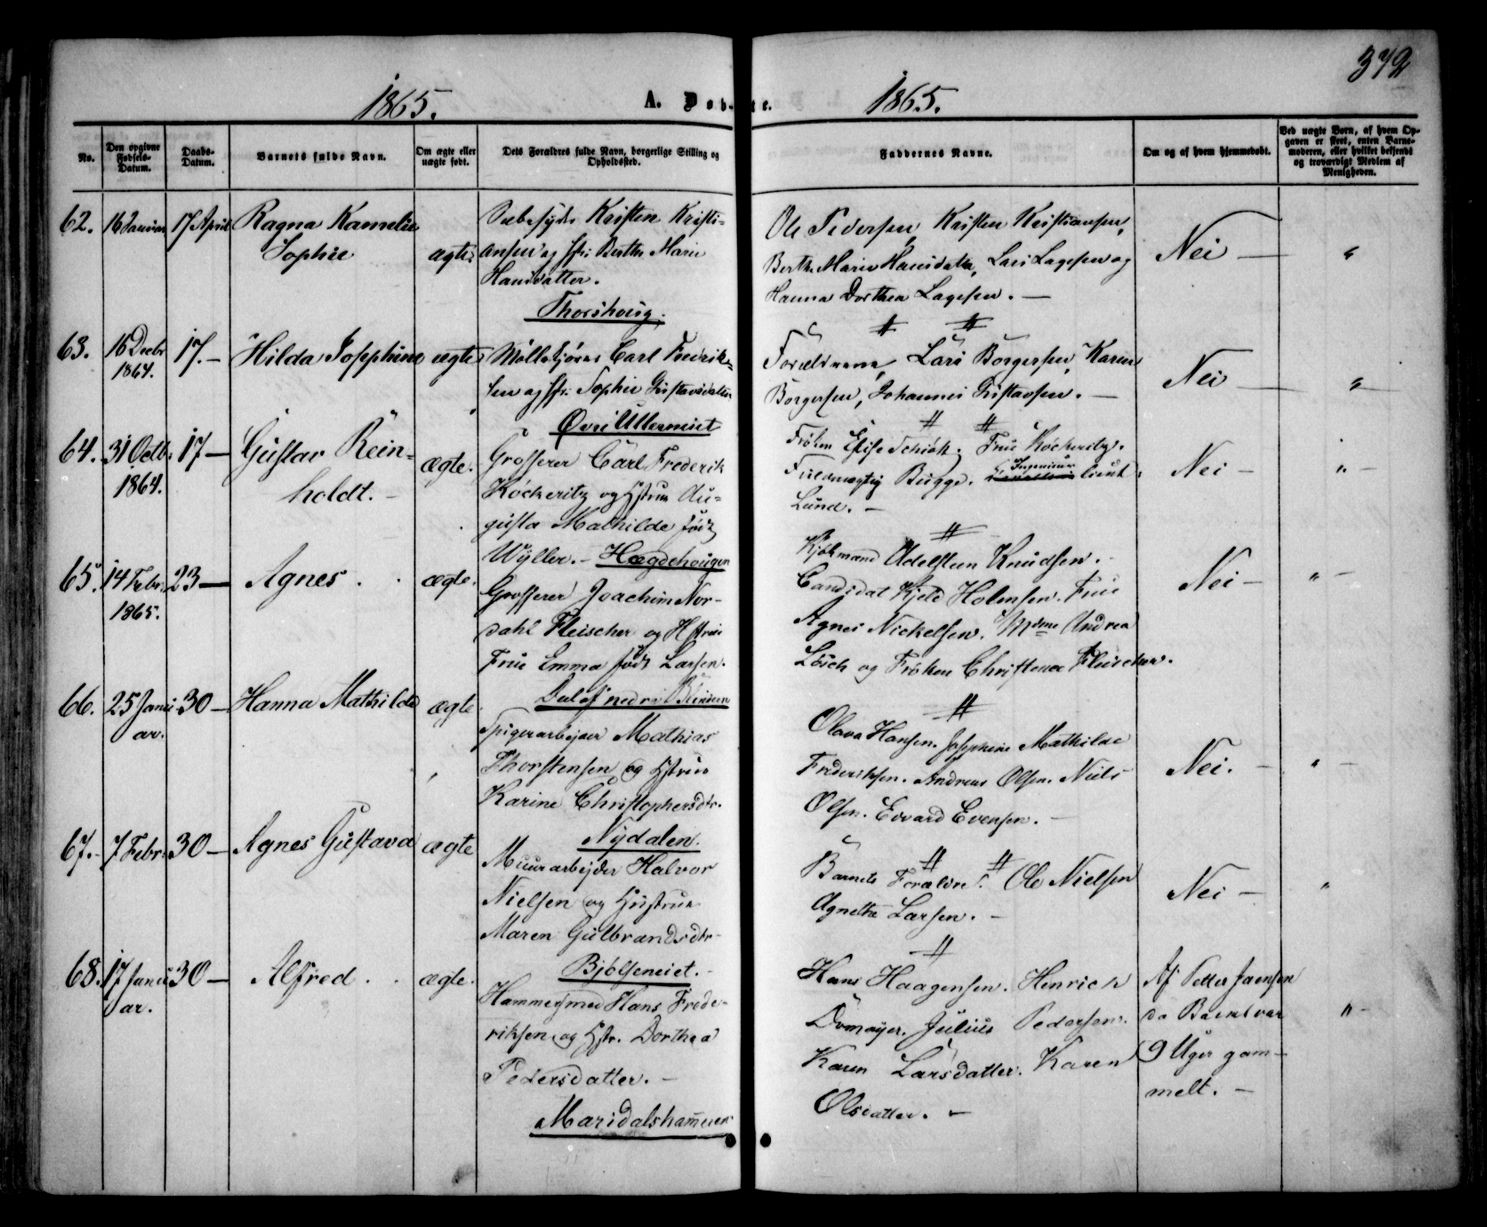 342
1865.
A. Døbte.
1865.
No.
Den opgivne Fødsels-Datum.
Daabs-Datum.
Barnets fulde Navn.
Om ægte eller uægte født.
Dets Forældres fulde Navn, borgerlige Stilling og Opholdssted.
Faddernes Navne.
Om og af hvem hjemmedøbt.
Ved uægte Born, af hvem Opgaven er skeet, enten Barnemoderen, eller hvilket bekjendt og troværdigt Medlem af Menigheden.
62. 16 Januar 17 April Ragna Kamelie
Sophie
ægte
Kristen Kristi-
ansen og Berthe Marie
Hansdatter.
Thorshoug.
Ole Pedersen, Kristen Kristiansen,
Berthe Marie Hansdatter, Lars Lagesen og
Hanna Dorthea Lagesen. —
Nei — "
63. 16 Decbr 1864. 17. — Hilda Josephine ægte
Carl Fredrik-
sen og Sophie Gustavsdatter
Øvre Ullernviet
Forældrene, Lars Borgersen, Karen
Borgersen, Johannes Gustavsen. —
Nei — "
64. 31 Octb. 1864. 17 — Gustav Rein-
holdt. —
ægte.
Grosserer Carl Frederik
Kockeritz og Hstrue Au-
gusta Mathilde født
Wyller. — Hægdehougen
Frøken Elise Schiøtz. Frue Kockeritz.
Fuldmægtig Bugge. Ingeniør
Lund. —
Nei — " —
65. 14 Febr. 1865. 23 — Agnes. ægte.
Grosserer Joachim Nor-
dahl Fleischer og Hstrue
Frue Emma født Larsen.
Kjøbmand Adelsteen Knudsen.
Candidat Kjeld Holmsen. Frue
Agnes Nickelsen. Mdme Andrea
og Frøken Christence Fleischer.
Nei — " —
66. 25 Janu-
ar. 30 — Hanna Mathilde ægte
Spigerarbejder Mathias
Thorstensen og Hstrue
Karine Christophersdtr.
Nydalen.
Olava Hansen. Josephine Mathilde
Frederiksen. Andreas Olsen. Niels
Olsen. Edvard Evensen. —
Nei. — " —
67. — 7 Febr. 30 — Agnes Gustava ægte
Muurarbejder Halvor
Nielsen og Hustrue
Maren Gulbrandsdtr.
Bjølsenviet. —
Barnets Forældre. Ole Nielsen
Agnethe Larsen. —
Nei — "
68. 17 Janu-
ar. 30 — Alfred. ægte.
Hammersmed Hans Frede-
riksen og Hstr. Dorthea
Pedersdatter. —
Maridalshammeren
Hans Haagensen. Henrich
Julius Pedersen.
Karen Larsdatter. Karen
Olsdatter. —
Af Petter Jansen
da Barnet var
9 Uger gam-
melt. —
" —